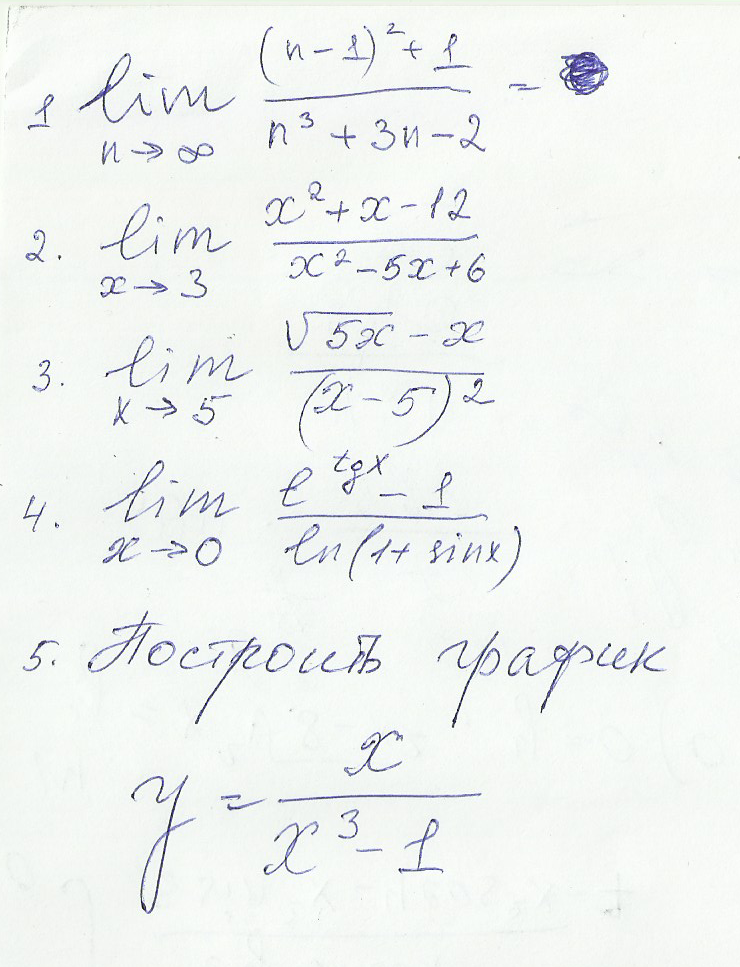 1 lim n→∞ ((n-1)² + 1) / (n³ + 3n - 2) =
2. lim x→3 (x² + x - 12) / (x² - 5x + 6)
3. lim x→5 (√5x - x) / (x - 5)²
4. lim x→0 (e^tgx - 1) / ln(1 + sinx)
5. Построить график
y = x / (x³ - 1)